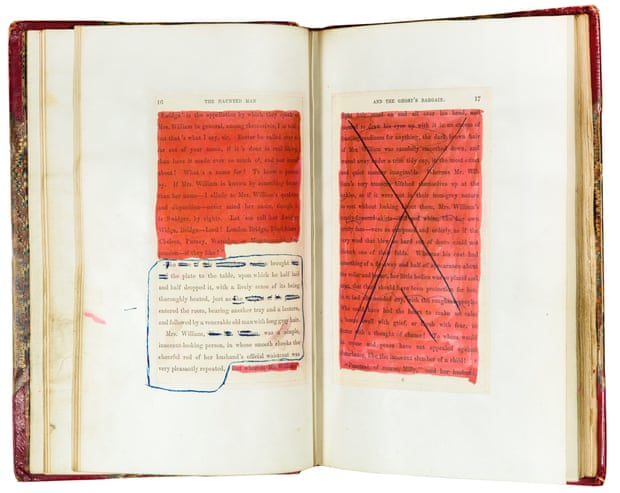 16 THE HAUNTED MAN
Swidge' is the appellation by which they speak of
Mrs. William in general, among themselves, I'm told;
but that's what I say, sir. Better be called ever so
far out of your name, if it's done in real liking,
than have it made ever so much of, and not cared
about! What's a name for? To know a person
by. If Mrs. William is known by something better
than her name—I allude to Mrs. William's qualities
and disposition—never mind her name, though it
is Swidger, by rights. Let 'em call her Swidge,
Widge, Bridge—Lord! London Bridge, Blackfriars,
Chelsea, Putney,
—if they like!
brought
the plate to the table, upon which he half laid
and half dropped it, with a lively sense of its being
thoroughly heated, just as
entered the room, bearing another tray and a lantern,
and followed by a venerable old man with long grey hair.
Mrs. William, was a simple,
innocent-looking person, in whose smooth cheeks the
cheerful red of her husband's official waistcoat was
very pleasantly repeated. But whereas Mr. William's
AND THE GHOST'S BARGAIN. 17
light hair stood on end all over his head, and
seemed to draw his eyes up with it in an excess of
bustling readiness for anything, the dark brown hair
of Mrs. William was carefully smoothed down, and
waved away under a trim tidy cap, in the most exact
and quiet manner imaginable. Whereas Mr. William's
very trousers hitched themselves up at the
ankles, as if it were not in their iron-grey nature
to rest without looking about them, Mrs. William's
neatly-flowered skirts—red and white, like her own
pretty face—were as composed and orderly, as if the
very wind that blew so hard out of doors could not
disturb one of their folds. Whereas his coat had
something of a fly-away and half-off appearance about
the collar and breast, her little bodice was so placid and
neat, that there should have been protection for her,
in it, had she needed any, with the roughest people.
Who could have had the heart to make so calm
a bosom swell with grief, or throb with fear, or
flutter with a thought of shame! To whom would
its repose and peace have not appealed against
disturbance, like the innocent slumber of a child!
"Punctual, of course, Milly," said her husband,